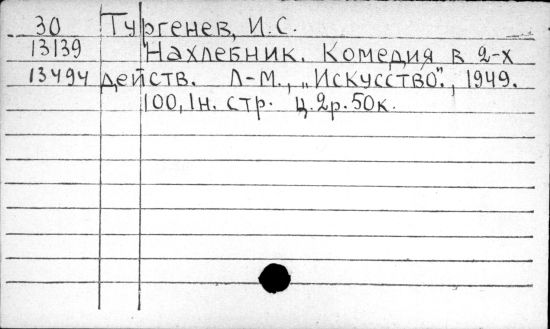 30 Тургенев, И.С.
13139 Нахлебник. Комедия в 2-х
13494 действ. Л-М., „Искусство"., 1949.
100, 1н. стр. ц. 2р. 50к.